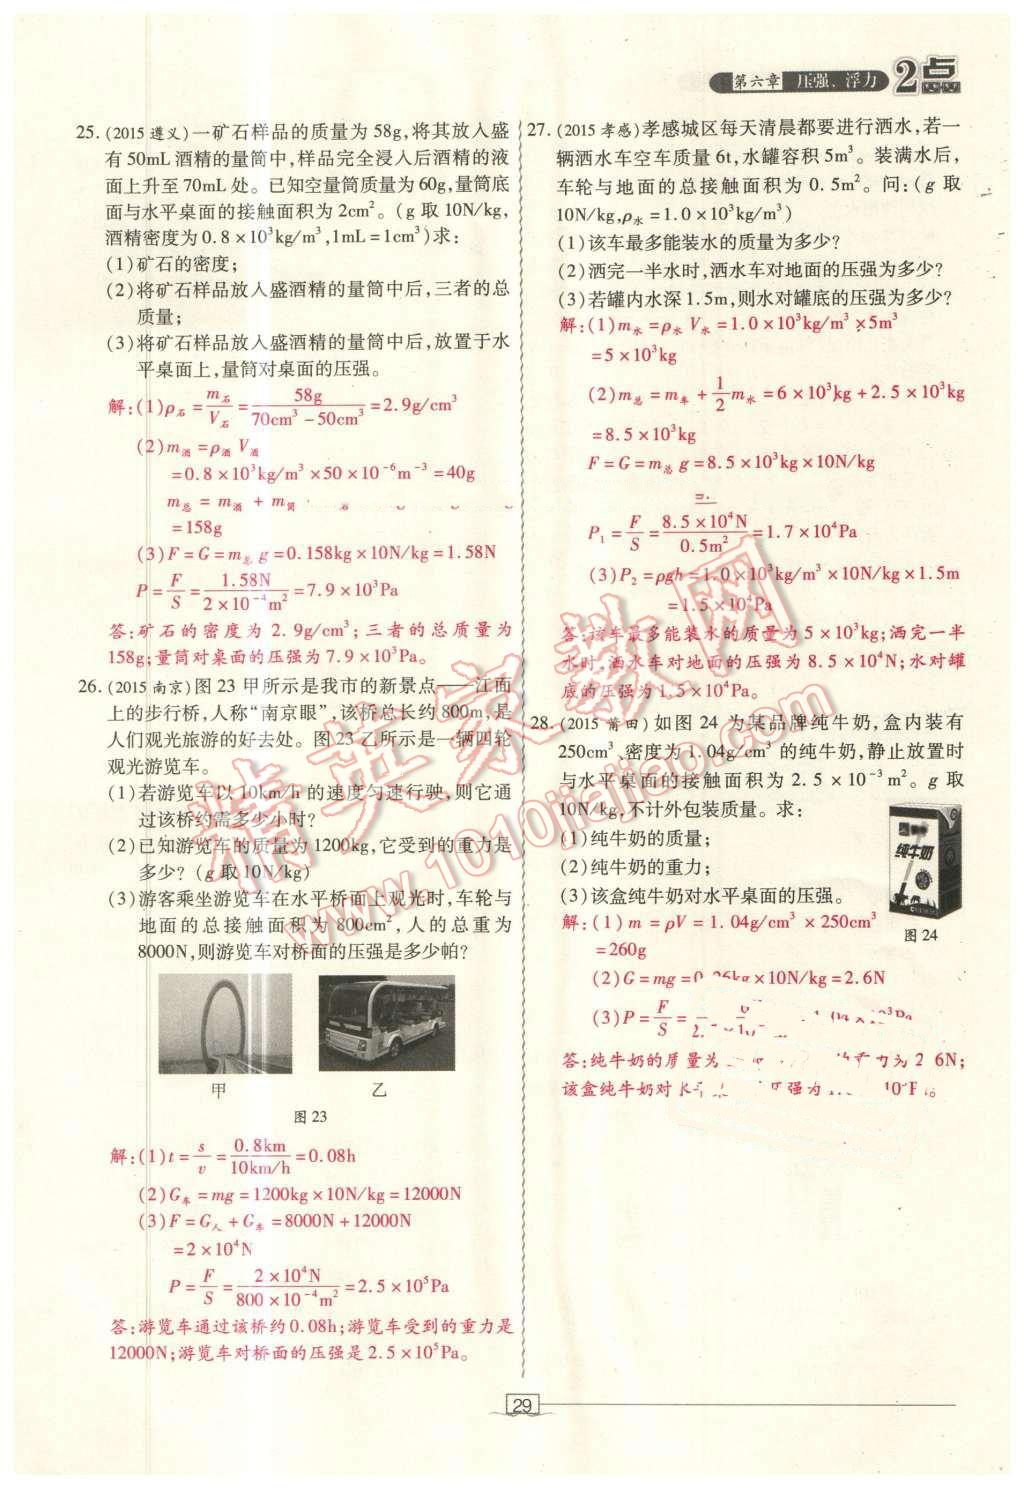 第六章 压强、浮力 2点
25. (2015 遵义)一矿石样品的质量为58g,将其放入盛
有50mL酒精的量筒中,样品完全浸入后酒精的液
面上升至70mL处。已知空量筒质量为60g,量筒底
面与水平桌面的接触面积为2cm²。(g取10N/kg,
酒精密度为0.8×10³kg/m³,1mL=1cm³)求:
(1)矿石的密度;
(2)将矿石样品放入盛酒精的量筒中后,三者的总
质量;
(3)将矿石样品放入盛酒精的量筒中后,放置于水
平桌面上,量筒对桌面的压强。
解:(1)ρ石=m石/V石=58g/(70cm³-50cm³)=2.9g/cm³
(2)m酒=ρ酒 V酒
=0.8×10³kg/m³×50×10⁻⁶m⁻³=40g
m总 = m酒 + m筒
=158g
(3)F=G=m总 g=0.158kg×10N/kg=1.58N
P=F/S=1.58N/(2×10⁻⁴m²)=7.9×10³Pa
答:矿石的密度为2.9g/cm³;三者的总质量为
158g;量筒对桌面的压强为7.9×10³Pa。
26. (2015 南京)图23甲所示是我市的新景点——江面
上的步行桥,人称“南京眼”,该桥总长约800m,是
人们观光旅游的好去处。图23乙所示是一辆四轮
观光游览车。
(1)若游览车以10km/h的速度匀速行驶,则它通
过该桥约需多少小时?
(2)已知游览车的质量为1200kg,它受到的重力是
多少?(g取10N/kg)
(3)游客乘坐游览车在水平桥面上观光时,车轮与
地面的总接触面积为800cm²,人的总重为
8000N,则游览车对桥面的压强是多少帕?
甲 乙
图23
解:(1)t=s/v=0.8km/(10km/h)=0.08h
(2)G车=mg=1200kg×10N/kg=12000N
(3)F=G人+G车=8000N+12000N
=2×10⁴N
P=F/S=2×10⁴N/(800×10⁻⁴m²)=2.5×10⁵Pa
答:游览车通过该桥约0.08h;游览车受到的重力是
12000N;游览车对桥面的压强是2.5×10⁵Pa。
27. (2015 孝感)孝感城区每天清晨都要进行洒水,若一
辆洒水车空车质量6t,水罐容积5m³。装满水后,
车轮与地面的总接触面积为0.5m²。问:(g取
10N/kg,ρ水=1.0×10³kg/m³)
(1)该车最多能装水的质量为多少?
(2)洒完一半水时,洒水车对地面的压强为多少?
(3)若罐内水深1.5m,则水对罐底的压强为多少?
解:(1)m水=ρ水 V水=1.0×10³kg/m³×5m³
=5×10³kg
(2)m总=m车+1/2m水=6×10³kg+2.5×10³kg
=8.5×10³kg
F=G=m总 g=8.5×10³kg×10N/kg
P₁=F/S=8.5×10⁴N/0.5m²=1.7×10⁴Pa
(3)P₂=ρgh=1.0×10³kg/m³×10N/kg×1.5m
=1.5×10⁴Pa
答:该车最多能装水的质量为5×10³kg;洒完一半
水时,洒水车对地面的压强为8.5×10⁴N;水对罐
底的压强为1.5×10⁴Pa。
28. (2015 莆田)如图24为某品牌纯牛奶,盒内装有
250cm³、密度为1.04g/cm³的纯牛奶,静止放置时
与水平桌面的接触面积为2.5×10⁻³m²。g取
10N/kg,不计外包装质量。求:
(1)纯牛奶的质量;
(2)纯牛奶的重力;
(3)该盒纯牛奶对水平桌面的压强。
纯牛奶
图24
解:(1)m=ρV=1.04g/cm³×250cm³
=260g
(2)G=mg=0.26kg×10N/kg=2.6N
(3)P=F/S=
答:纯牛奶的质量为
该盒纯牛奶对水
29
精英家教网
www.1010jiajiao.com